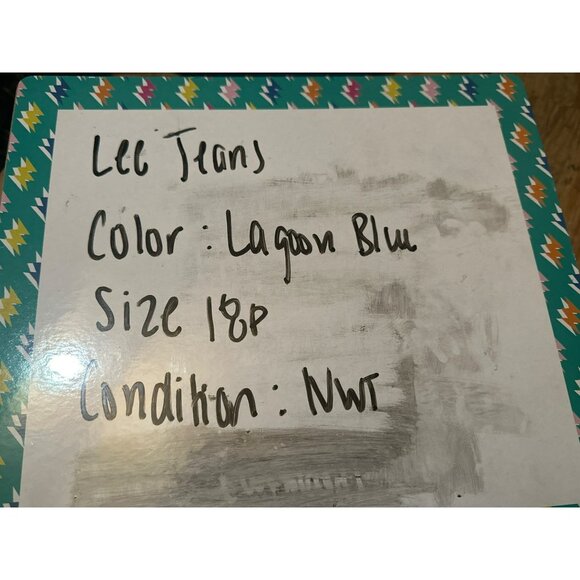 Lee Jeans
Color : Lagoon Blue
Size 18P
Condition : NWT